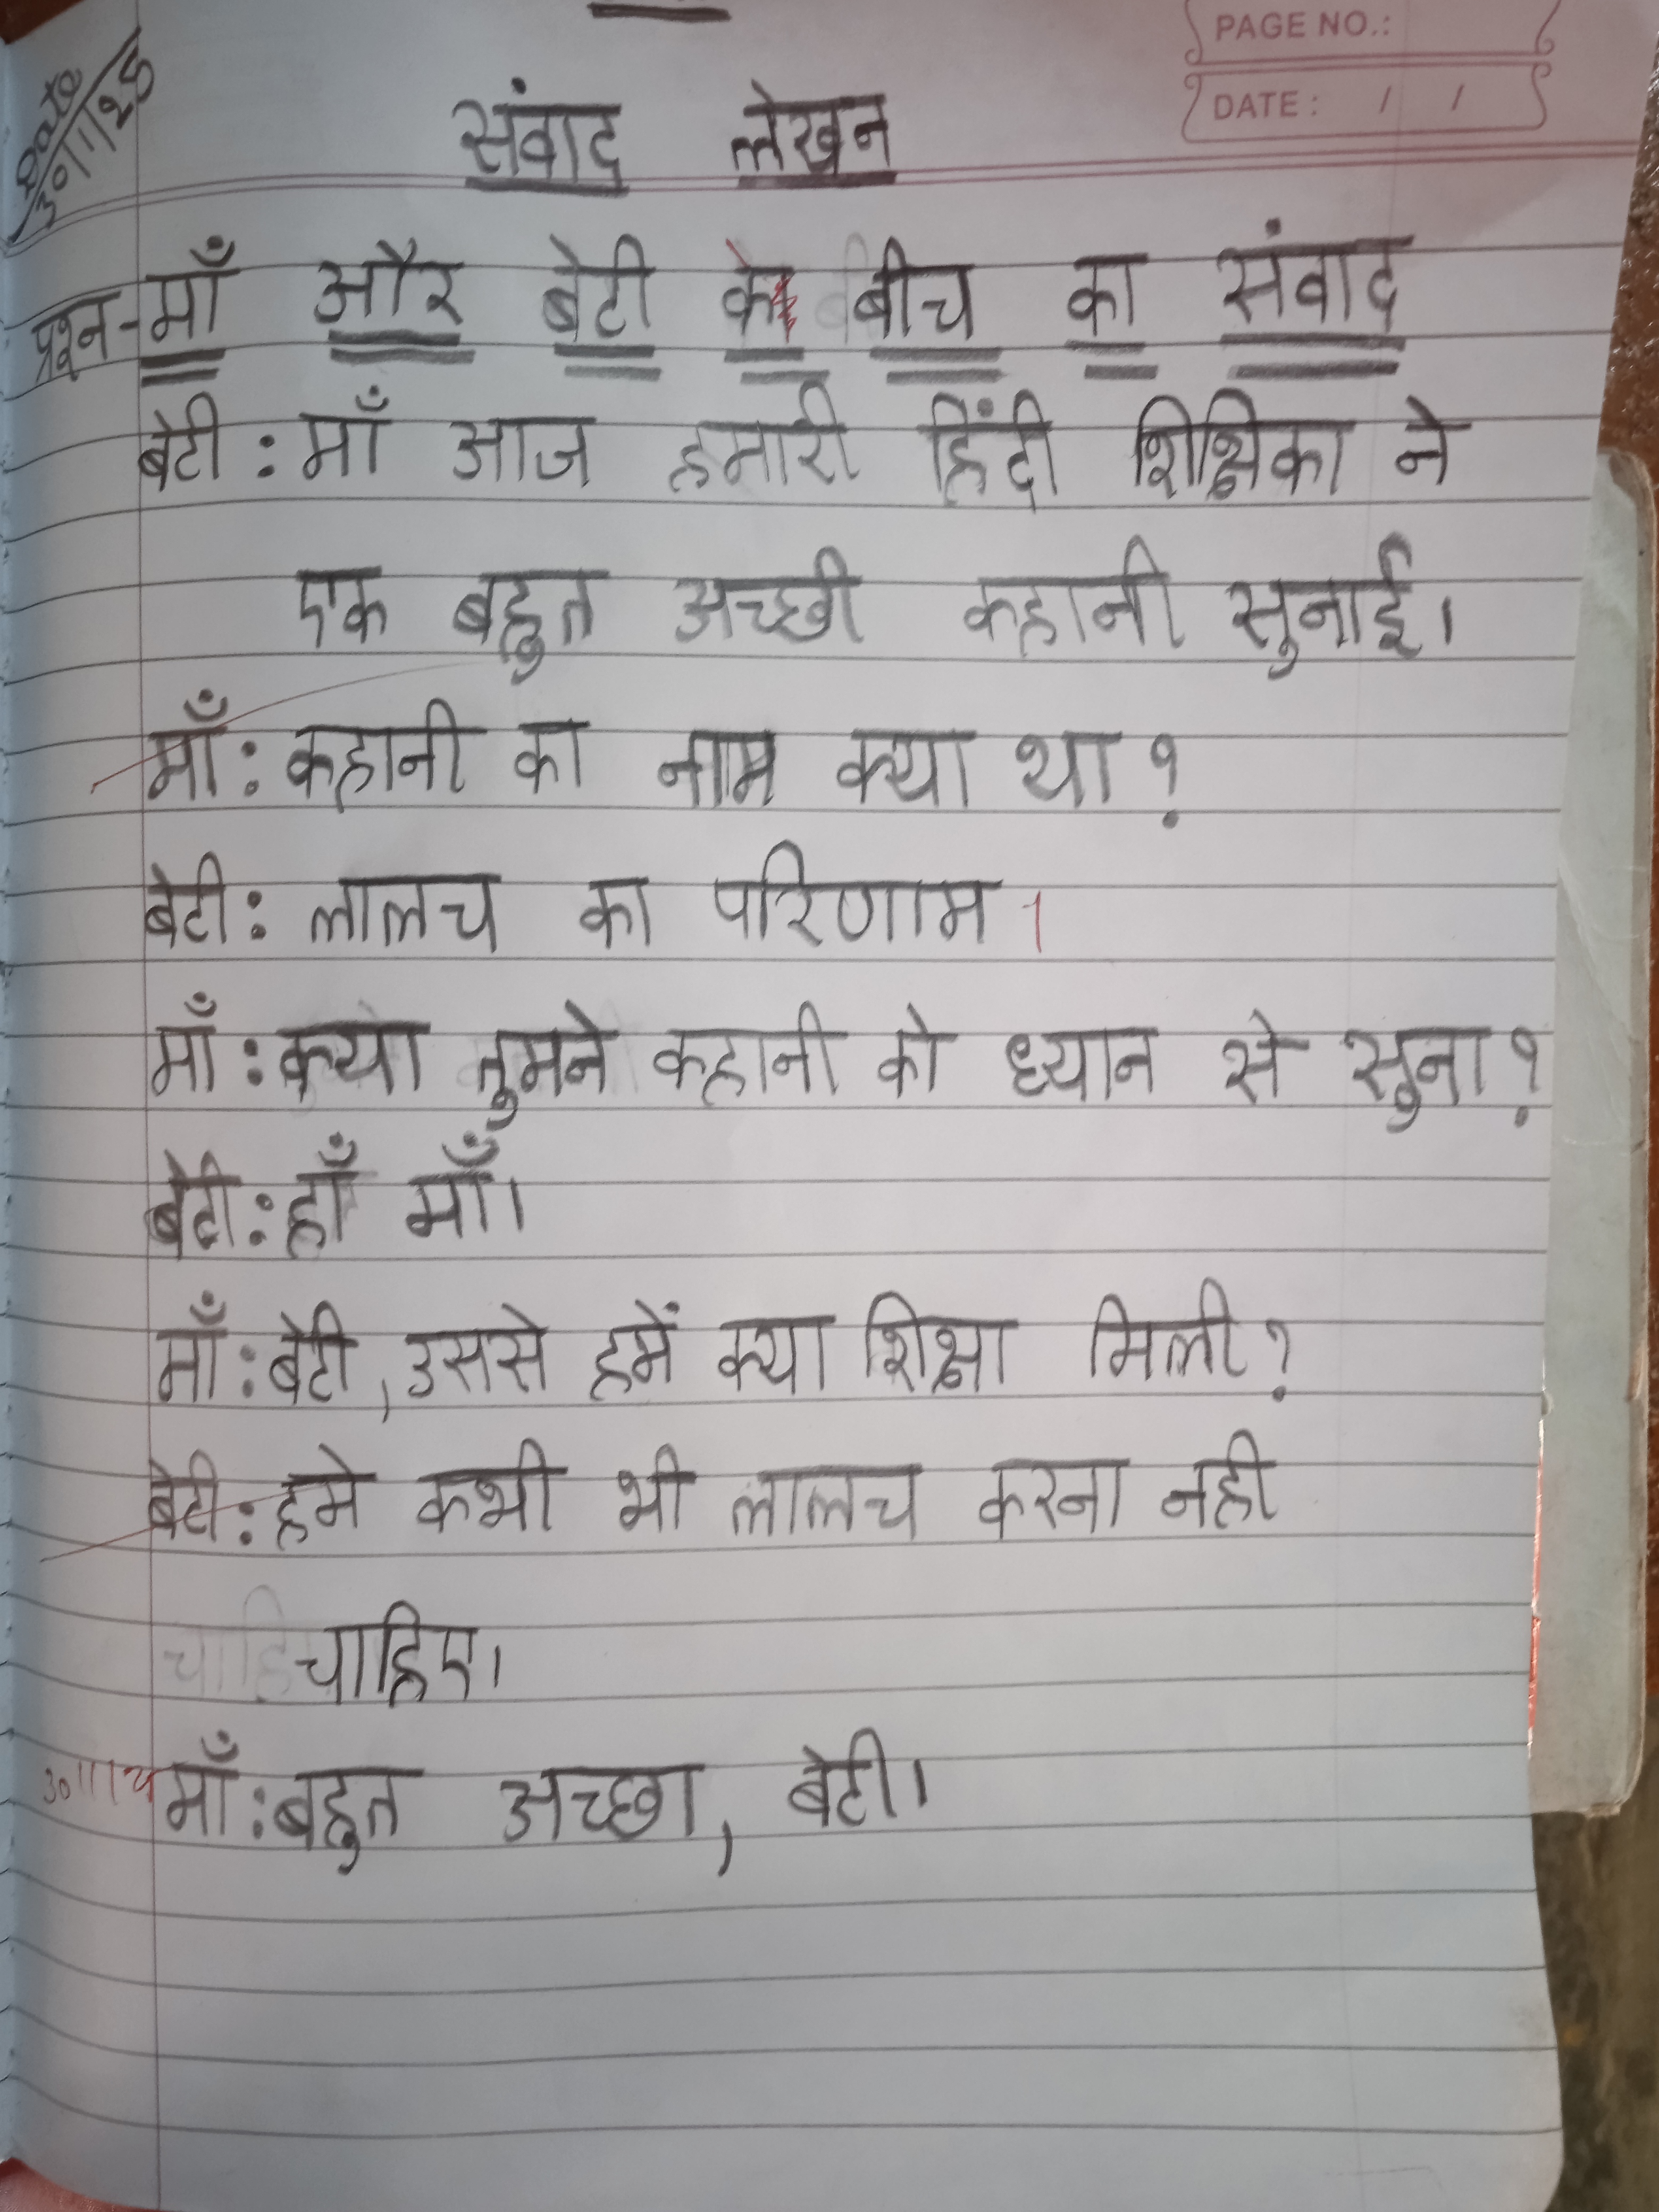 PAGE NO.:
DATE: / /
Date
30/1/25
संवाद लेखन
प्रश्न-माँ और बेटी के बीच का संवाद
बेटी : माँ आज हमारी हिंदी शिक्षिका ने
एक बहुत अच्छी कहानी सुनाई।
माँ : कहानी का नाम क्या था ?
बेटी : लालच का परिणाम।
माँ : क्या तुमने कहानी को ध्यान से सुना ?
बेटी : हाँ माँ।
माँ : बेटी, उससे हमें क्या शिक्षा मिली ?
बेटी : हमे कभी भी लालच करना नही
चाहिए।
माँ : बहुत अच्छा, बेटी।